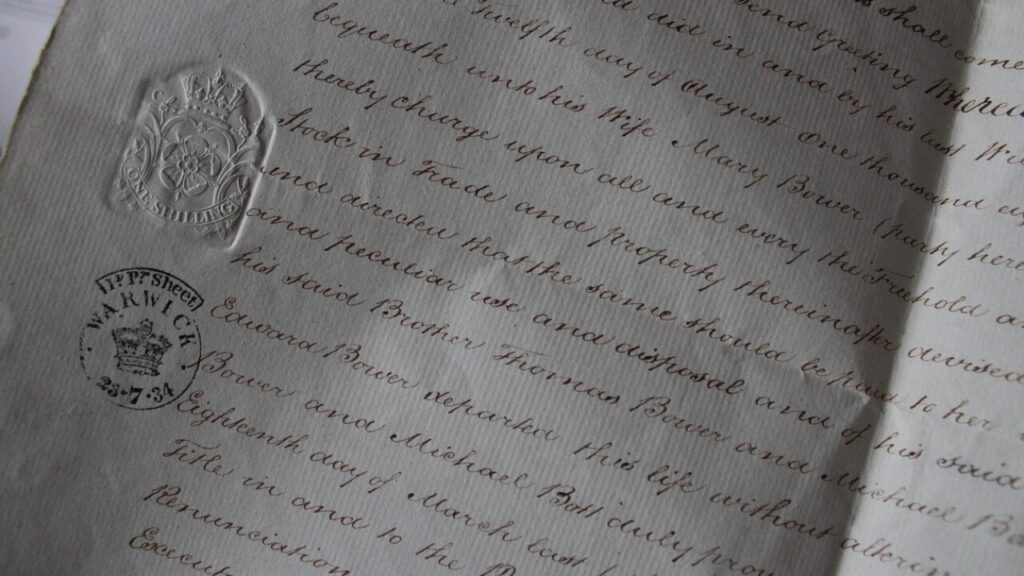 shall come
send Greeting Whereas
did in and by his last Will
Twelfth day of August One thousand eig
bequeath unto his Wife Mary Bower (party here
thereby charge upon all and every the Freehold
Stock in Trade and property thereinafter devised
and directed that the same should be paid to her
and peculiar use and disposal and of his said
his said Brother Thomas Bower and Michael Bo
Edward Bower departed this life without alterin
Bower and Michael Bott duly prov
Eighteenth day of March last
Title in and to the
Renunciation
Execut
ONE SHILLING
WARWICK
28·7·34